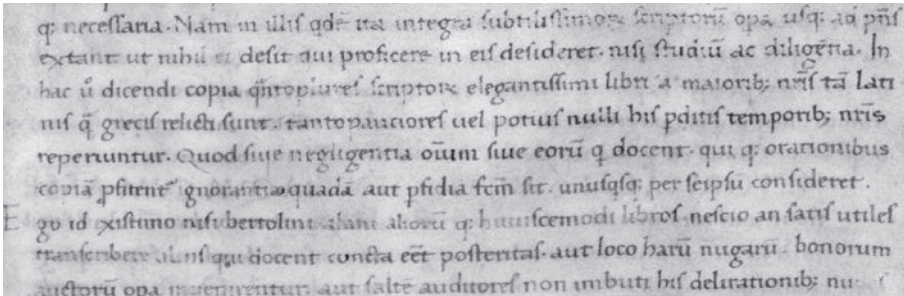 q; neceſſaria. Nam in illiſ qdē ita integra ſubtiliſſimoꝝ ſcriptorū opa uſq; ad pn̄ſ
extant ut nihil ei deſit qui proficere in eiſ deſideret. niſi ſtudiū ac diligētia. In
hac uͦ dicendi copia qn̄to plureſ ſcriptoꝝ elegantiſſimi libri a maiorib; nr̄iſ tā lati
niſ q̄ greciſ relicti ſunt. tanto paucioreſ uel potiuſ nulli hiſ pditiſ temporib; nr̄iſ
reperiuntur. Quod ſiue negligentia oīum ſiue eorū q docent. qui q; orationibus
copiā pfitent ignorantia quadā aut pfidia fcm̄ ſit. unuſqſq; per ſeipſū conſideret.
E go id exiſtimo niſi bertolini alani aliorū q; huiuſcemodi libroſ neſcio an ſatiſ utileſ
tranſcribere qui docent concta eēt poſteritaſ. aut loco harū nugarū bonorum
auctorū opa inuenirentur. aut ſaltē auditoreſ non imbuti hiſ delirationib;